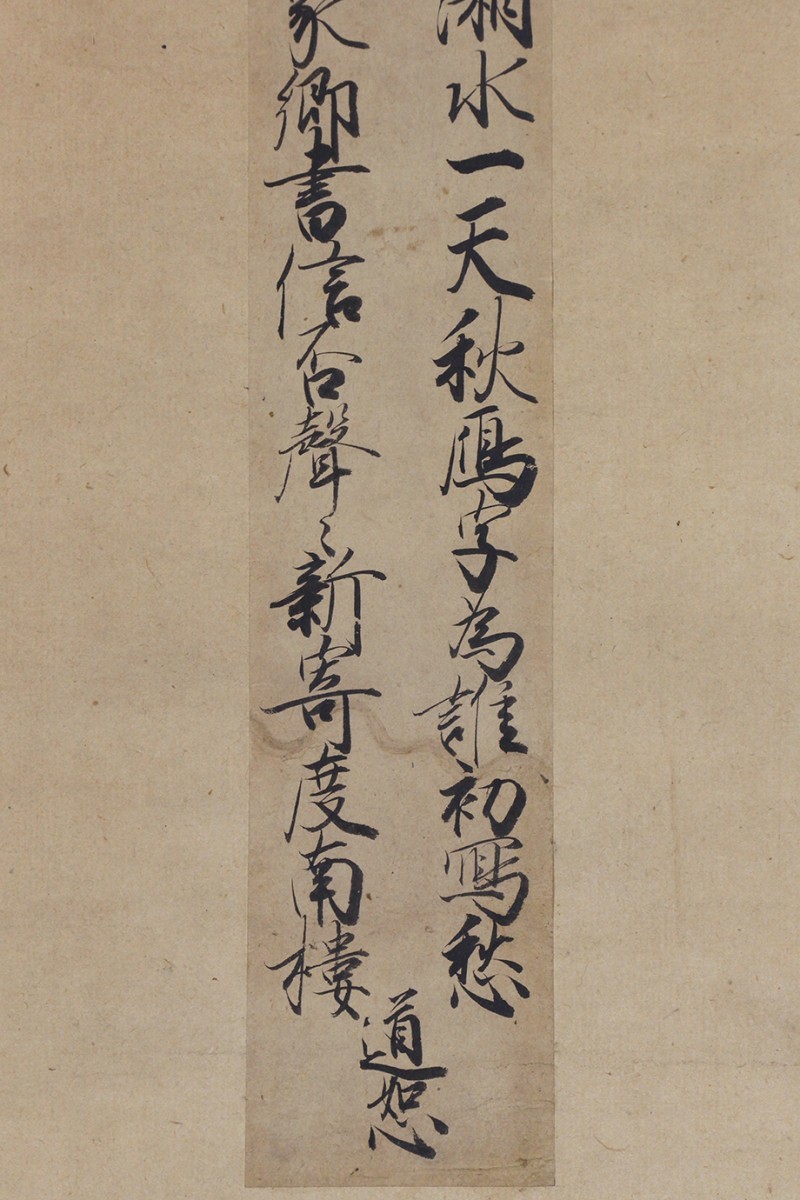 湘水一天秋鴈字為誰初寫愁
家鄉書信否聲〻新寄度南樓
道恕